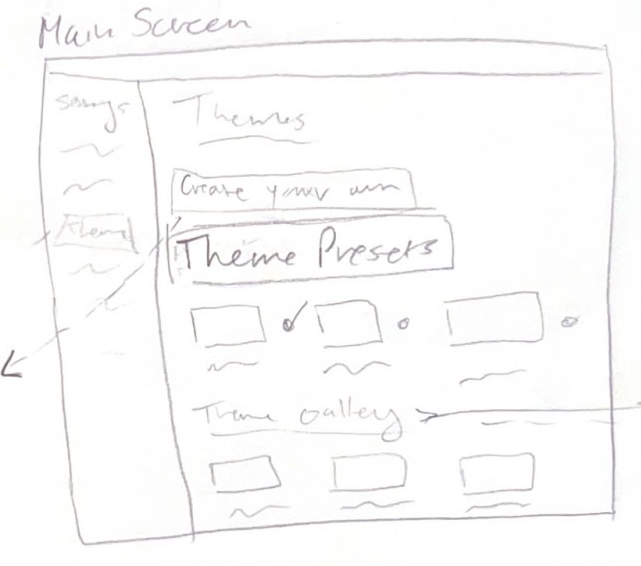 Main Screen
Settings
Themes
Create your own
Theme
Theme Presets
Theme Gallery >